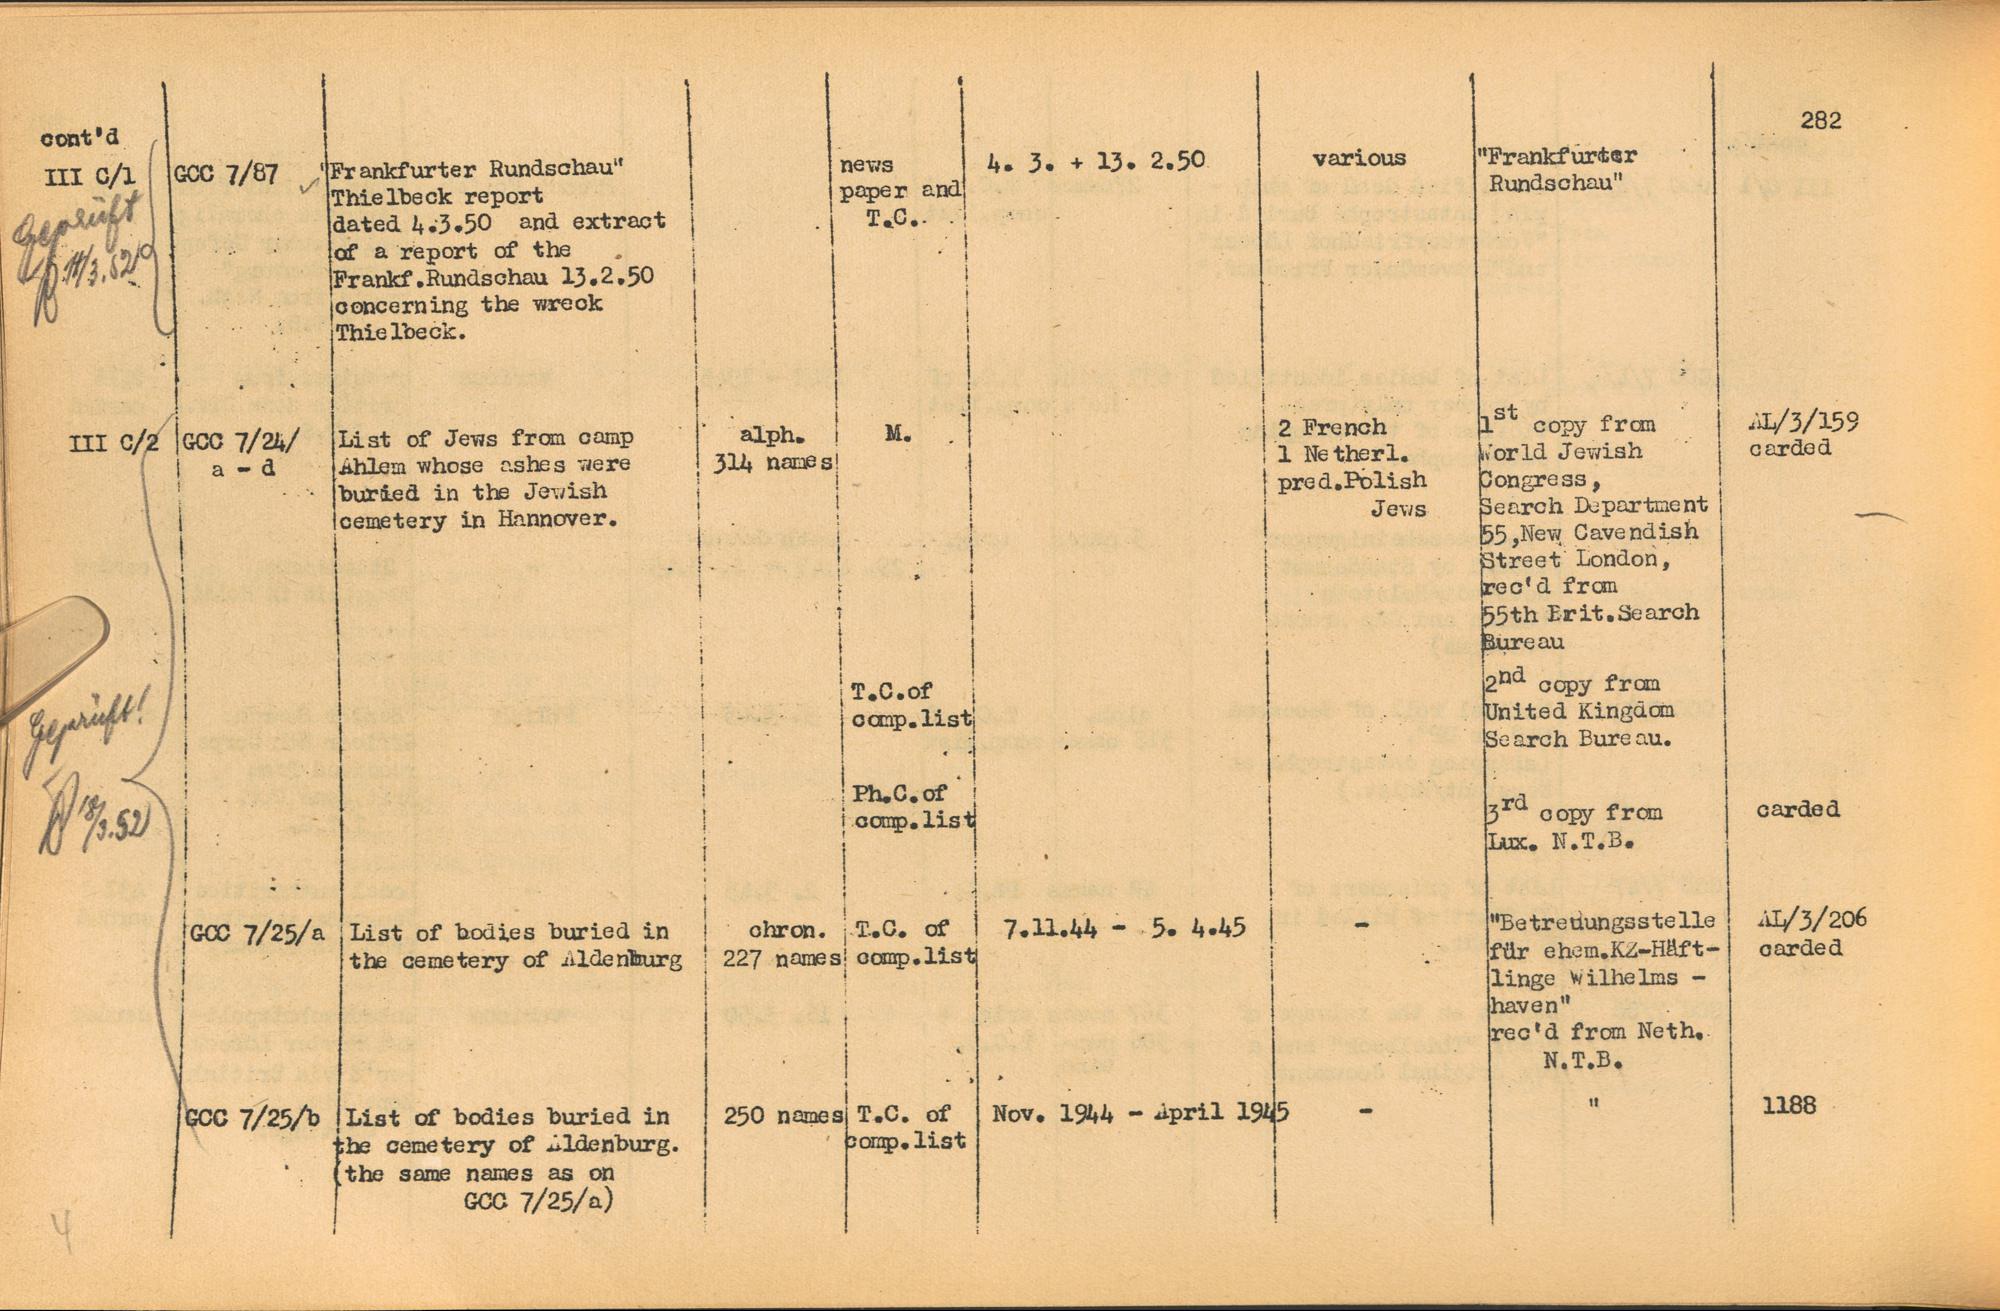 282
cont'd
III C/1
GCC 7/87
"Frankfurter Rundschau"
Thielbeck report
dated 4.3.50 and extract
of a report of the
Frankf.Rundschau 13.2.50
concerning the wreck
Thielbeck.
news
paper and
T.C.
4. 3. + 13. 2.50
various
"Frankfurter
Rundschau"
Geprüft
14/3.52
III C/2
GCC 7/24/
a - d
List of Jews from camp
Ahlem whose ashes were
buried in the Jewish
cemetery in Hannover.
alph.
314 names
M.
2 French
1 Netherl.
pred.Polish
Jews
1st copy from
World Jewish
Congress,
Search Department
55,New Cavendish
Street London,
rec'd from
55th Brit.Search
Bureau
AL/3/159
carded
T.C.of
comp.list
2nd copy from
United Kingdom
Search Bureau.
Ph.C.of
comp.list
3rd copy from
Lux. N.T.B.
carded
Geprüft!
18/3.52
GCC 7/25/a
List of bodies buried in
the cemetery of Aldenburg
chron.
227 names
T.C. of
comp.list
7.11.44 - 5. 4.45
-
"Betreuungsstelle
für ehem.KZ-Häft-
linge Wilhelms -
haven"
rec'd from Neth.
N.T.B.
AL/3/206
carded
GCC 7/25/b
List of bodies buried in
the cemetery of Aldenburg.
(the same names as on
GCC 7/25/a)
250 names
T.C. of
comp.list
Nov. 1944 - April 1945
-
"
1188
4